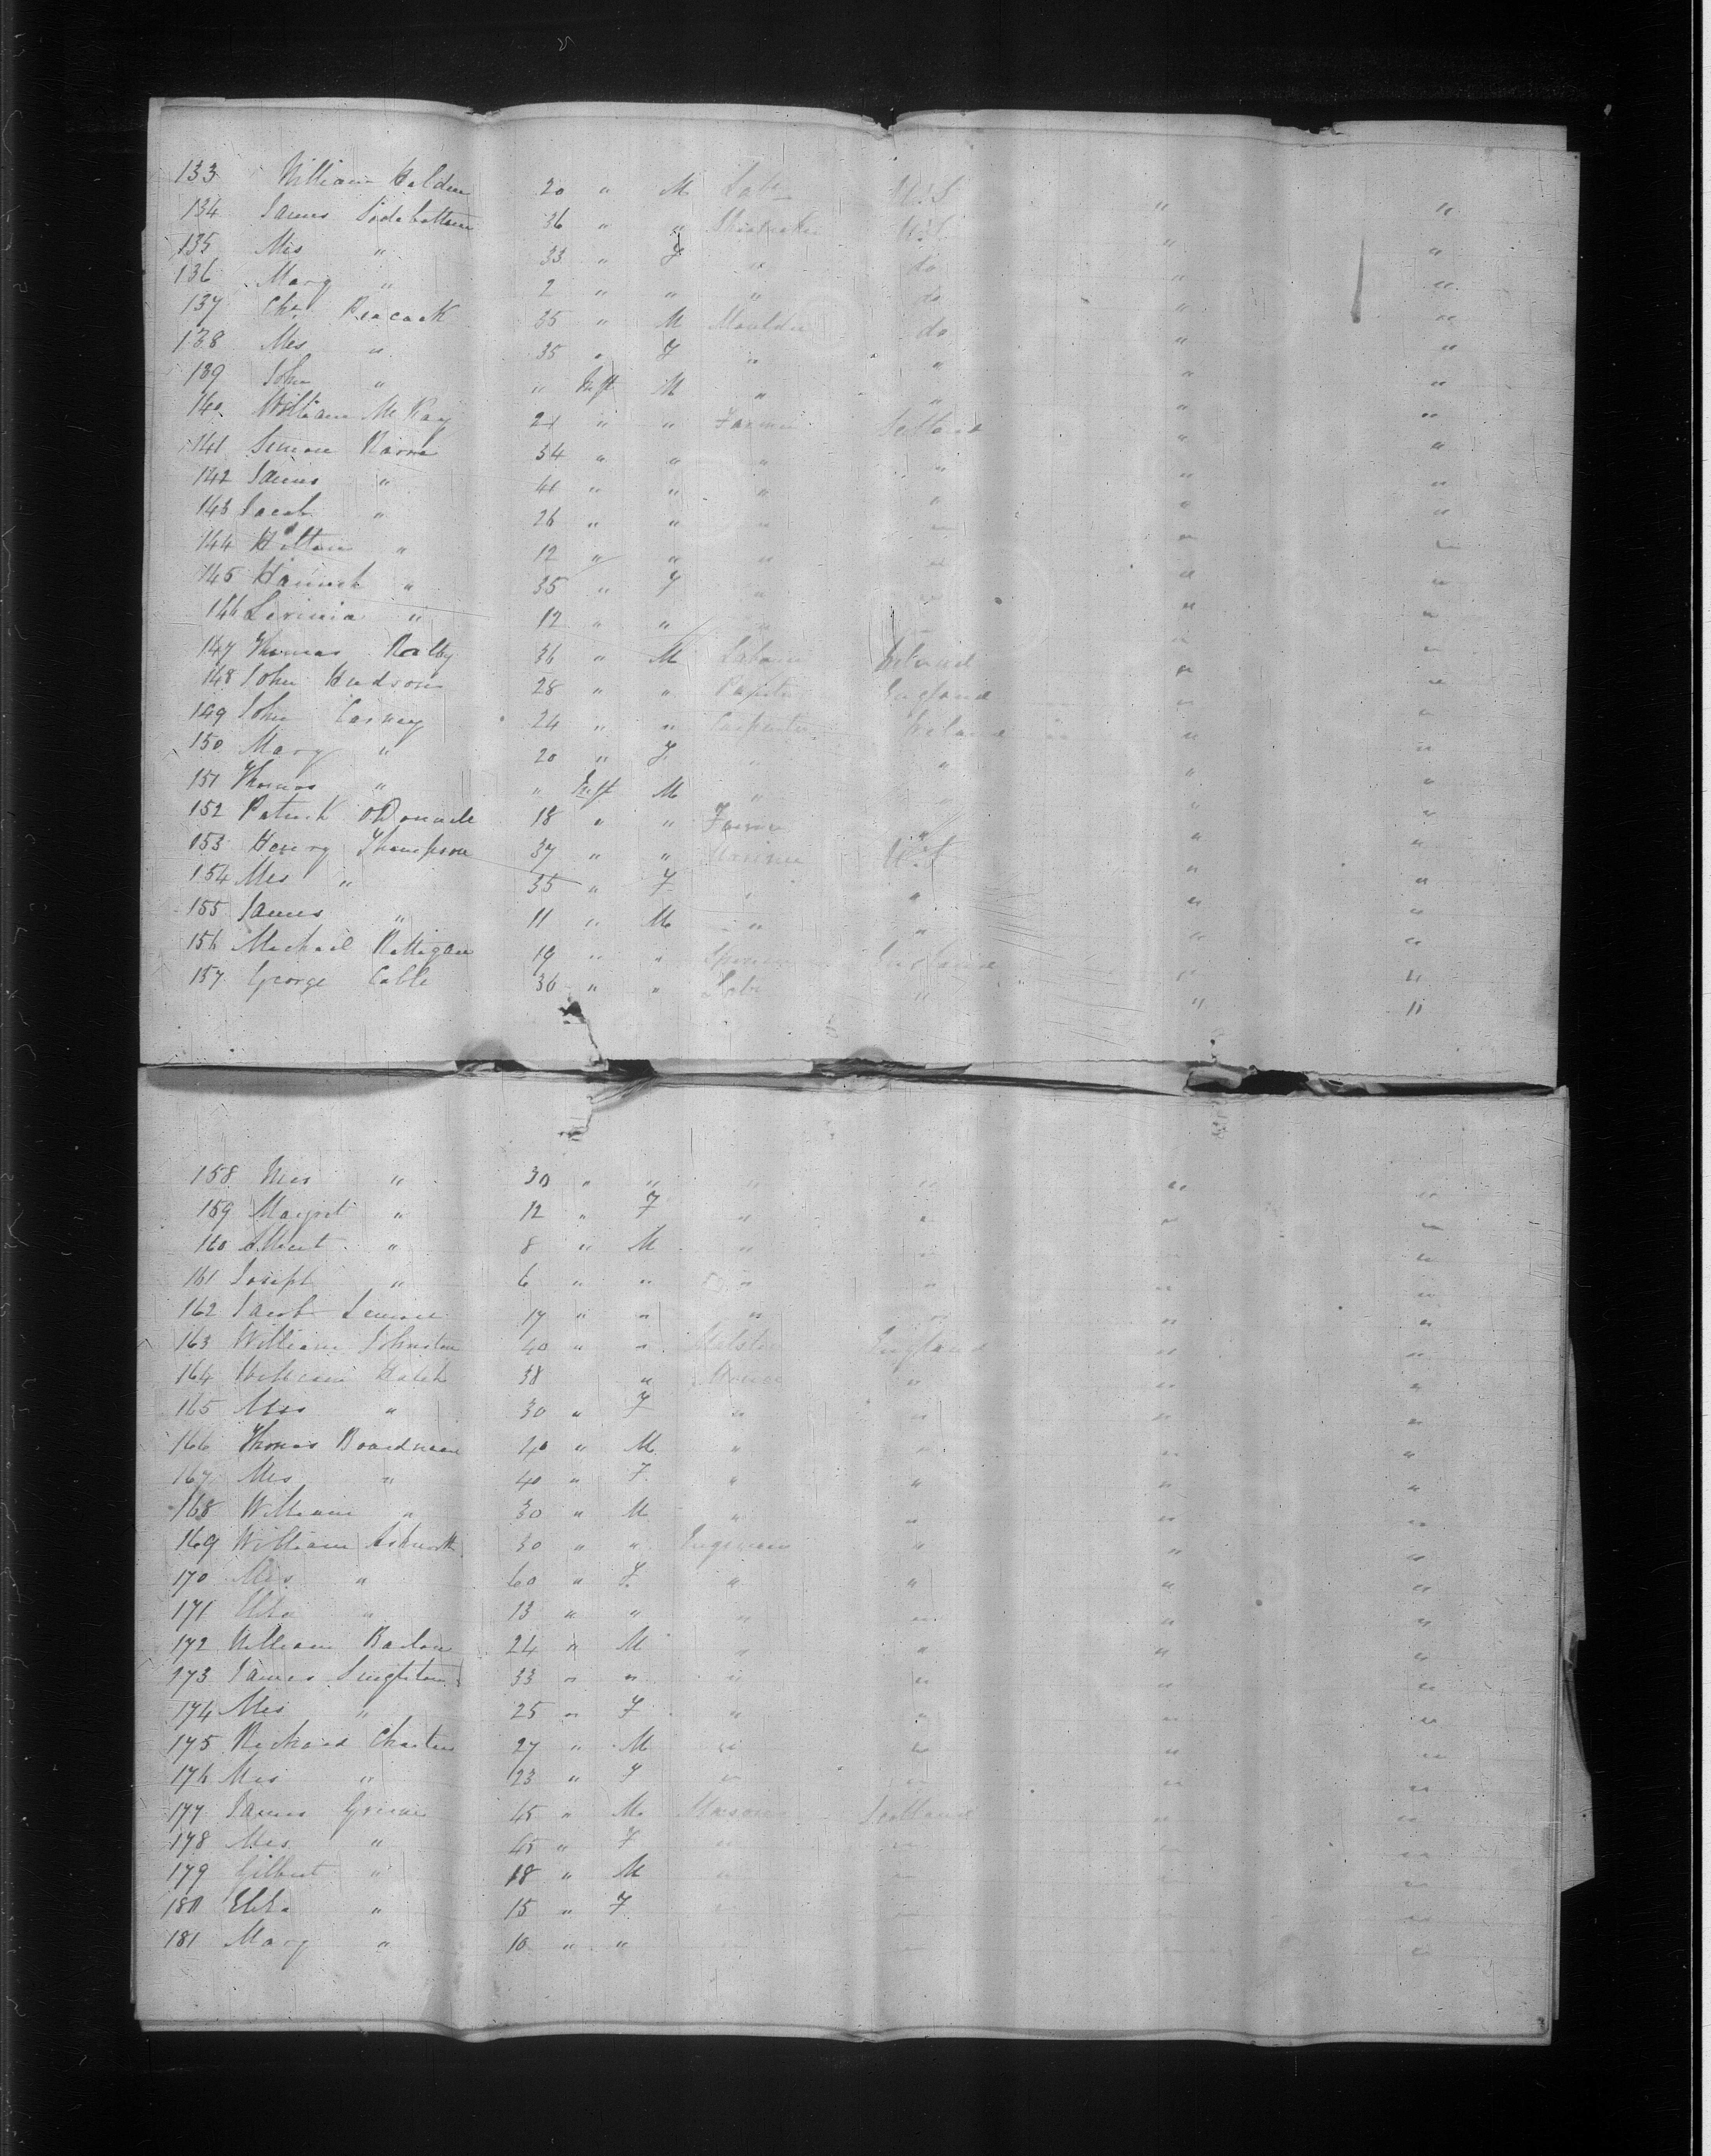 133 William Holden 20 " M Labr U.S " "
134 James Sidebottom 36 " " U.S " "
135 Mrs " 33 " F " do " "
136 Mary " 2 " " " do " "
137 Chs Peacock 35 " M Moulder do " "
138 Mrs " 35 " F " " " "
139 John " " Inft M " " " "
140 William McKay 21 " " Farmer Scotland " "
141 Simon 34 " " " " " "
142 James " 41 " " " " " "
143 Jacob " 26 " " " " " "
144 " 12 " " " " " "
145 Hannah " 35 " F " " " "
146 Lavinia " 12 " " " " " "
147 Thomas 36 " M Labour Ireland " "
148 John Hudson 28 " " Painter England " "
149 John Carney 24 " " Carpenter Ireland " "
150 Mary " 20 " F " " " "
151 Thomas " " Inft M " " " "
152 Patrick ODonnell 18 " " Farmer " " "
153 Henry Thompson 37 " " U.S " "
154 Mrs " 35 " F " " " "
155 James " 11 " M " " " "
156 Michael Rattigan 19 " " England " "
157 George Cable 36 " " Labr " " "
158 Mrs " 30 " " " " " "
159 Margret " 12 " F " " " "
160 Albert " 8 " M " " " "
161 Joseph " 6 " " " " " "
162 Jacob 17 " " " " " "
163 William Johnston 40 " " England " "
164 William Hatch 38 " " " "
165 Mrs " 30 " F " " " "
166 Thomas Boardman 40 " M " " " "
167 Mrs " 40 " F " " " "
168 William " 30 " M " " " "
169 William Ashworth 30 " " Engineer " " "
170 Mrs " 60 " F " " " "
171 Eliza " 13 " " " " " "
172 William Barlow 24 " M " " " "
173 James Singleton 33 " " " " " "
174 Mrs " 25 " F " " " "
175 Richard 27 " M " " " "
176 Mrs " 23 " F " " " "
177 James 45 " M Mason Scotland " "
178 Mrs " 45 " F " " " "
179 Gilbert " 18 " M " " " "
180 Eliza " 15 " F " " " "
181 Mary " 10 " " " " "